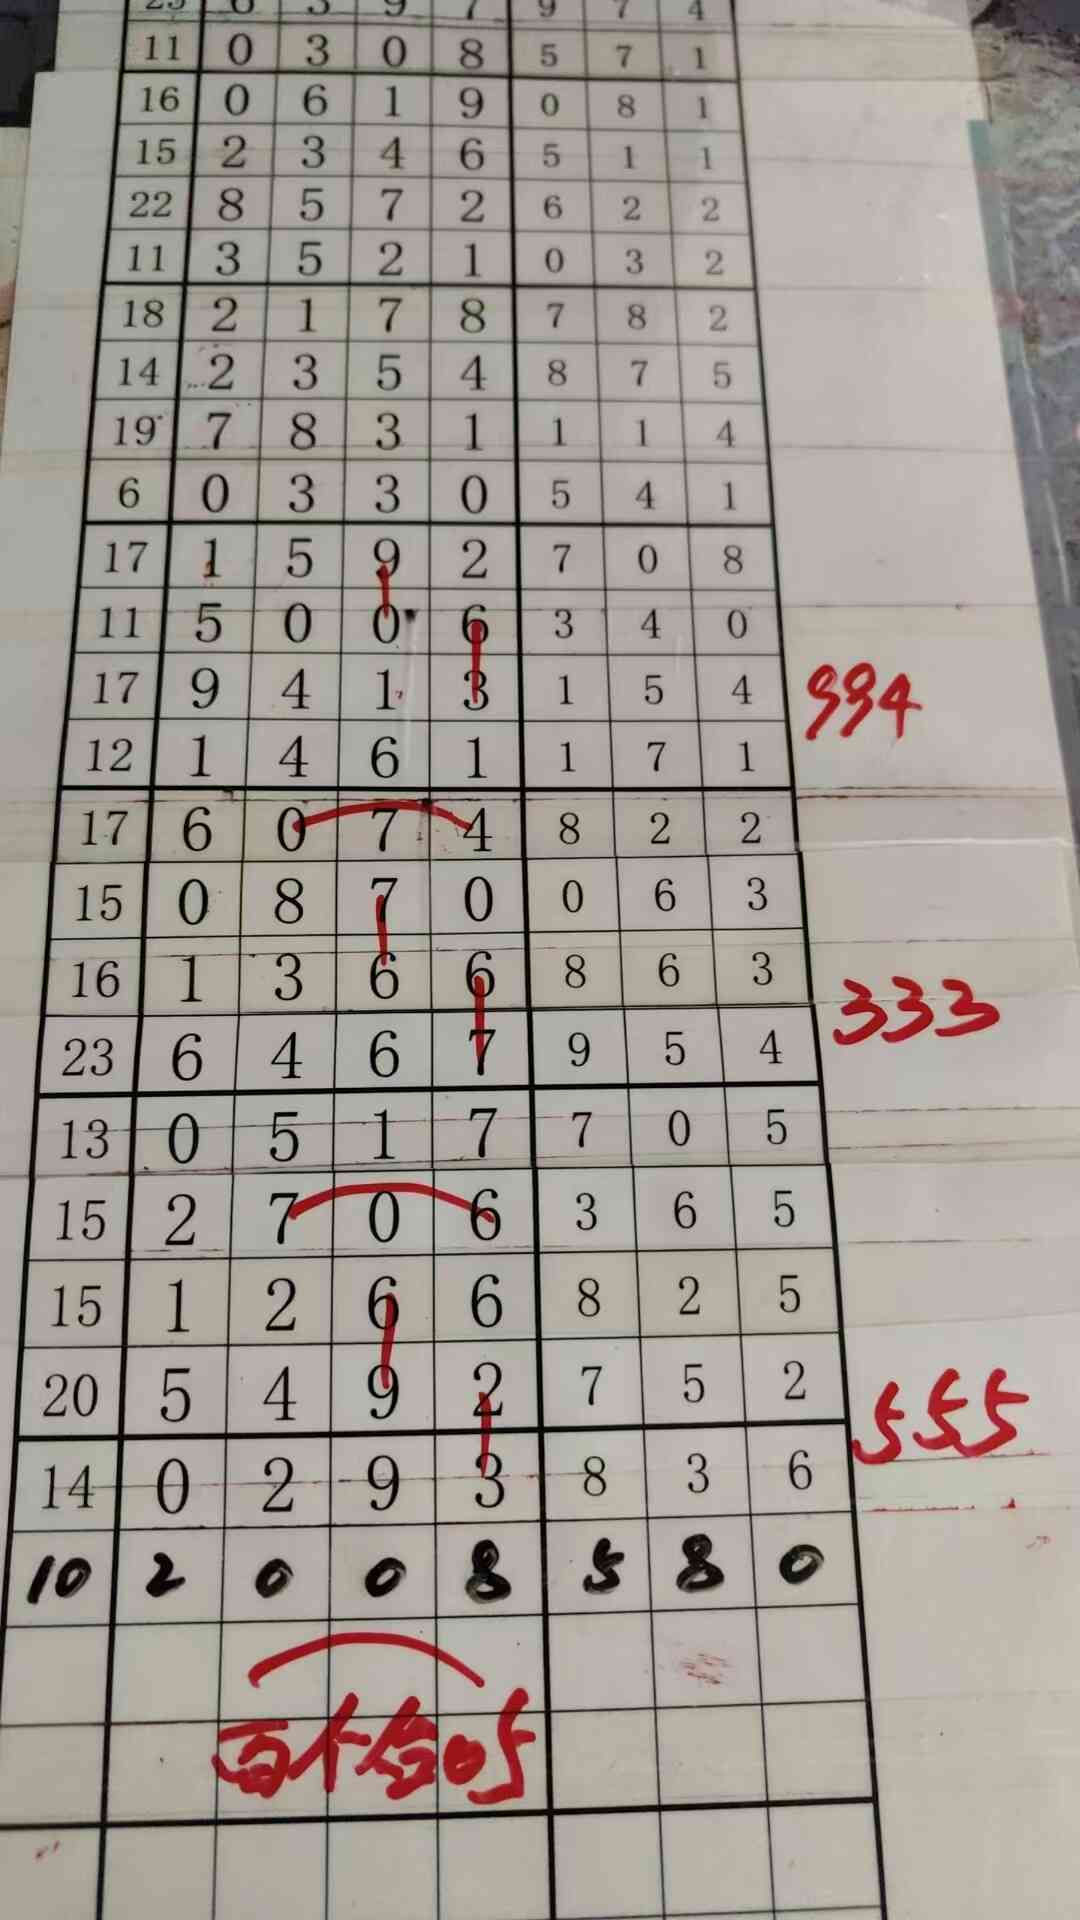 25 6 3 9 7 9 7 4
11 0 3 0 8 5 7 1
16 0 6 1 9 0 8 1
15 2 3 4 6 5 1 1
22 8 5 7 2 6 2 2
11 3 5 2 1 0 3 2
18 2 1 7 8 7 8 2
14 2 3 5 4 8 7 5
19 7 8 3 1 1 1 4
6 0 3 3 0 5 4 1
17 1 5 9 2 7 0 8
11 5 0 0 6 3 4 0
17 9 4 1 3 1 5 4 994
12 1 4 6 1 1 7 1
17 6 0 7 4 8 2 2
15 0 8 7 0 0 6 3
16 1 3 6 6 8 6 3 333
23 6 4 6 7 9 5 4
13 0 5 1 7 7 0 5
15 2 7 0 6 3 6 5
15 1 2 6 6 8 2 5
20 5 4 9 2 7 5 2 555
14 0 2 9 3 8 3 6
10 2 0 0 8 5 8 0
百个合05